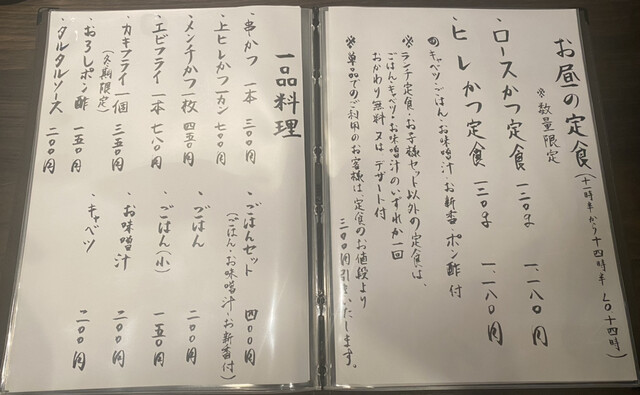 お昼の定食(十一時半から十四時半 L.O十四時)
※数量限定
・ロースかつ定食 一三〇g 一、一八〇円
・ヒレかつ定食 一三〇g 一、一八〇円
キャベツ・ごはん・お味噌汁・お新香・ポン酢付
※ランチ定食・お子様セット以外の定食は、
ごはん・キャベツ・お味噌汁のいずれか一回
おかわり無料又はデザート付
※単品でのご利用のお客様は定食のお値段より
三〇〇円引きいたします。
一品料理
・串かつ 一本 三〇〇円
・上ヒレかつ一カン 七〇〇円
・メンチかつ一枚 四五〇円
・エビフライ 一本 七八〇円
・カキフライ一個 三五〇円
(冬期限定)
・おろしポン酢 一五〇円
・タルタルソース 二〇〇円
・ごはんセット 四〇〇円
(ごはん・お味噌汁・お新香付)
・ごはん 二〇〇円
・ごはん(小) 一五〇円
・お味噌汁 二〇〇円
・キャベツ 二〇〇円